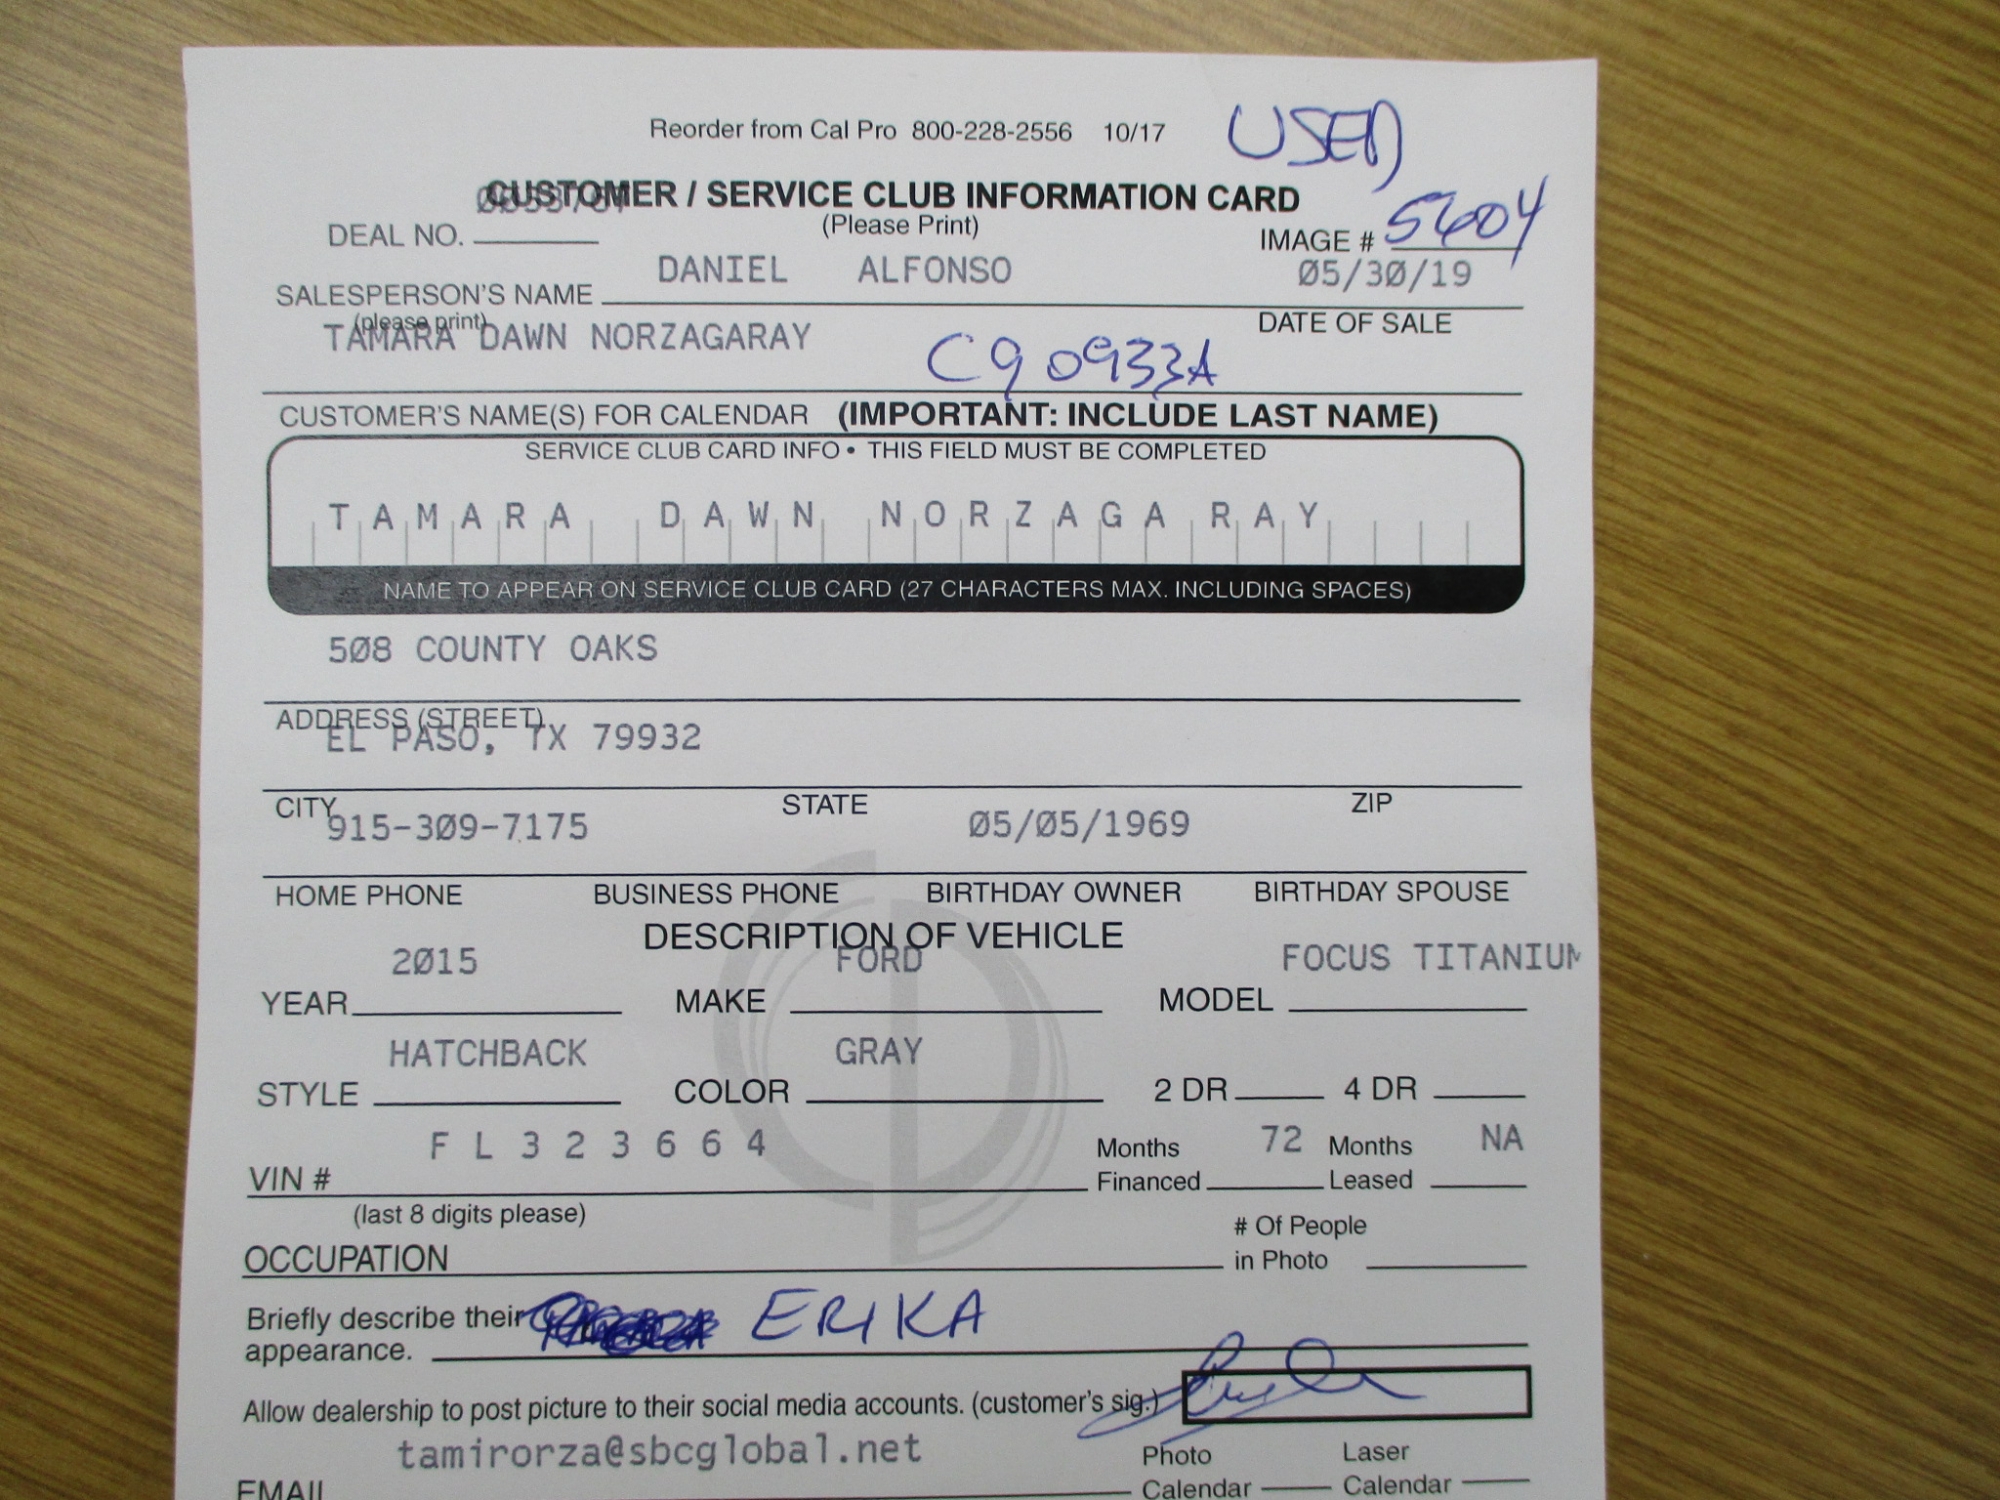 Reorder from Cal Pro 800-228-2556 10/17 USED
CUSTOMER / SERVICE CLUB INFORMATION CARD
(Please Print)
DEAL NO. IMAGE # 5604
DANIEL ALFONSO 05/30/19
SALESPERSON'S NAME
(please print) DATE OF SALE
TAMARA DAWN NORZAGARAY C90933A
CUSTOMER'S NAME(S) FOR CALENDAR (IMPORTANT: INCLUDE LAST NAME)
SERVICE CLUB CARD INFO • THIS FIELD MUST BE COMPLETED
TAMARA DAWN NORZAGARAY
NAME TO APPEAR ON SERVICE CLUB CARD (27 CHARACTERS MAX. INCLUDING SPACES)
508 COUNTY OAKS
ADDRESS (STREET)
EL PASO, TX 79932
CITY STATE ZIP
915-309-7175 05/05/1969
HOME PHONE BUSINESS PHONE BIRTHDAY OWNER BIRTHDAY SPOUSE
DESCRIPTION OF VEHICLE
2015 FORD FOCUS TITANIUM
YEAR MAKE MODEL
HATCHBACK GRAY
STYLE COLOR 2 DR 4 DR
F L 3 2 3 6 6 4 Months 72 Months NA
VIN # Financed Leased
(last 8 digits please)
# Of People
OCCUPATION in Photo
Briefly describe their ERIKA
appearance.
Allow dealership to post picture to their social media accounts. (customer's sig.)
tamirorza@sbcglobal.net Photo Laser
EMAIL Calendar Calendar